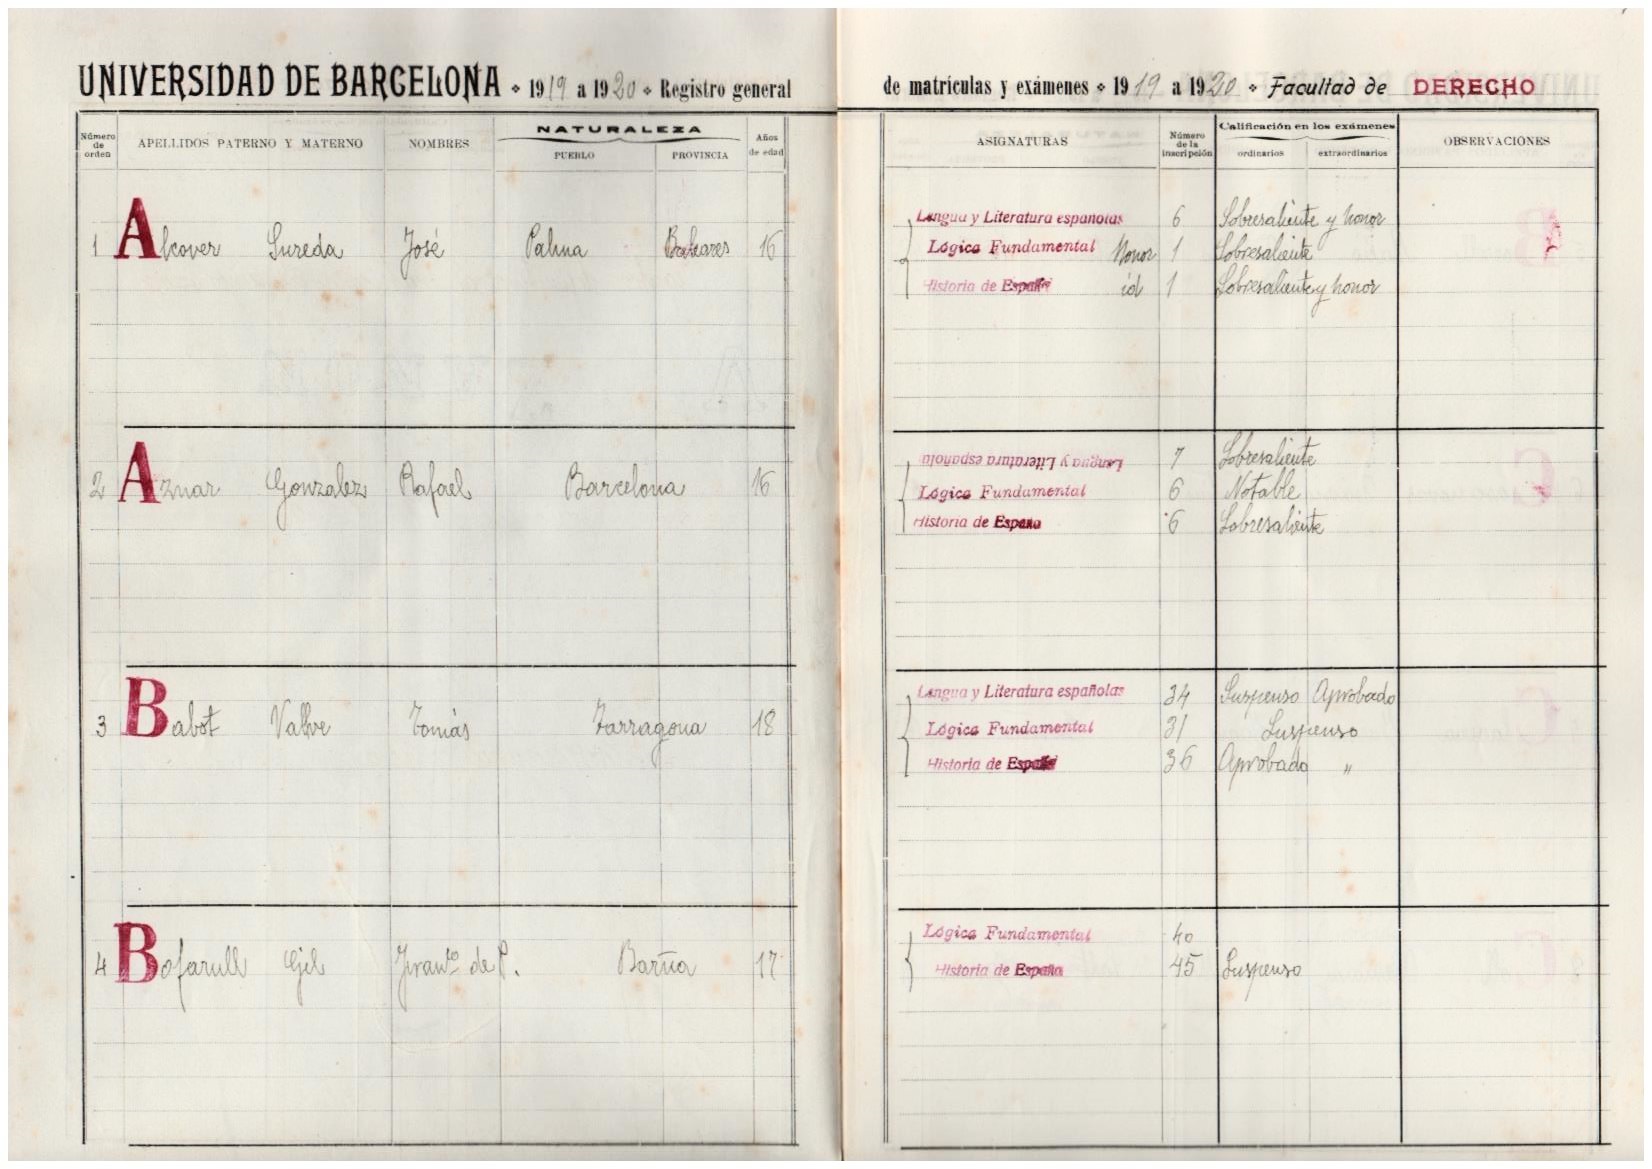 UNIVERSIDAD DE BARCELONA • 1919 a 1920 • Registro general de matrículas y exámenes • 1919 a 1920 • Facultad de DERECHO
Número de orden APELLIDOS PATERNO Y MATERNO NOMBRES NATURALEZA PUEBLO PROVINCIA Años de edad ASIGNATURAS Número de la inscripción Calificación en los exámenes ordinarios extraordinarios OBSERVACIONES
Lengua y Literatura españolas 6 Sobresaliente y honor
1 Alcover Sureda José Palma Baleares 16 Lógica Fundamental Honor 1 Sobresaliente
Historia de España id 1 Sobresaliente y honor
Lengua y Literatura española 7 Sobresaliente
2 Aznar Gonzalez Rafael Barcelona 16 Lógica Fundamental 6 Notable
Historia de España 6 Sobresaliente
Lengua y Literatura españolas 34 Suspenso Aprobado
3 Babot Vallve Tomás Tarragona 18 Lógica Fundamental 31 Suspenso
Historia de España 36 Aprobado "
Lógica Fundamental 40
4 Bofarull Gil Franco de P. Barna 17 Historia de España 45 Suspenso